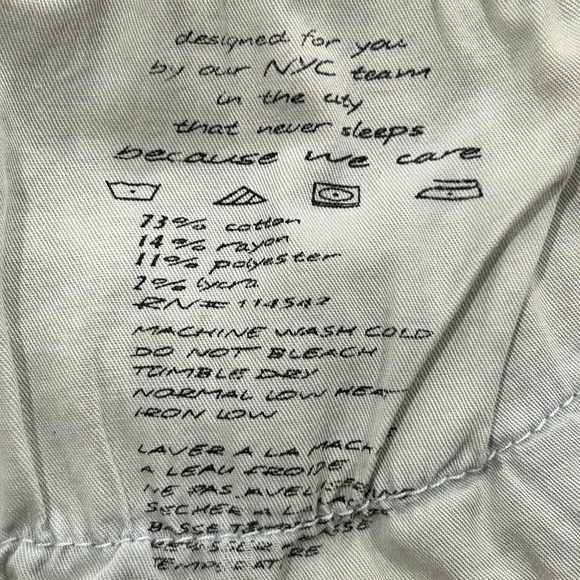 designed for you
by our NYC team
in the city
that never sleeps
because we care
73% cotton
14% rayon
11% polyester
2% lycra
RN# 114542
MACHINE WASH COLD
DO NOT BLEACH
TUMBLE DRY
NORMAL LOW HEAT
IRON LOW
LAVER A LA MACH
A LEAU FROIDE
NE PAS
SECHER A LA
BASSE